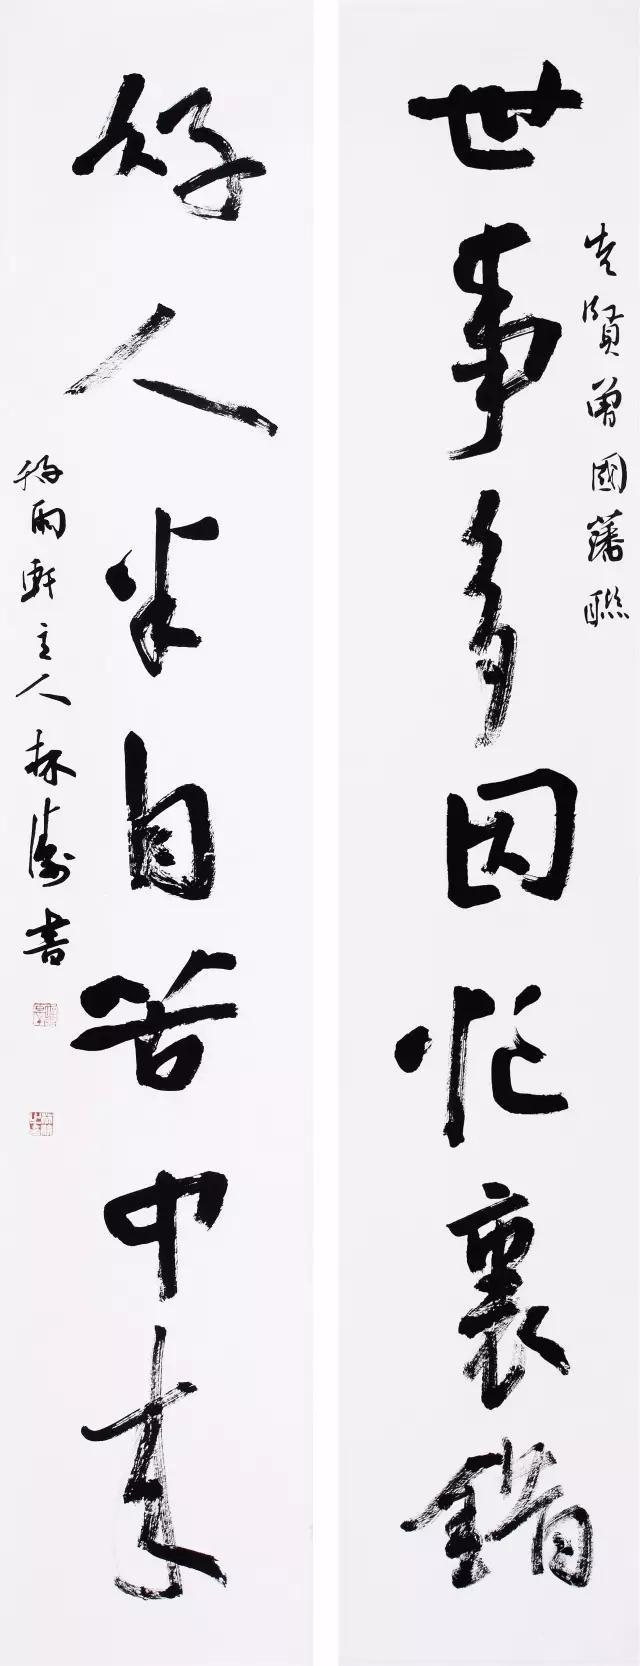 先賢曾國藩聯
世事多因忙裏錯
好人半自苦中來
雨軒主人林濤書